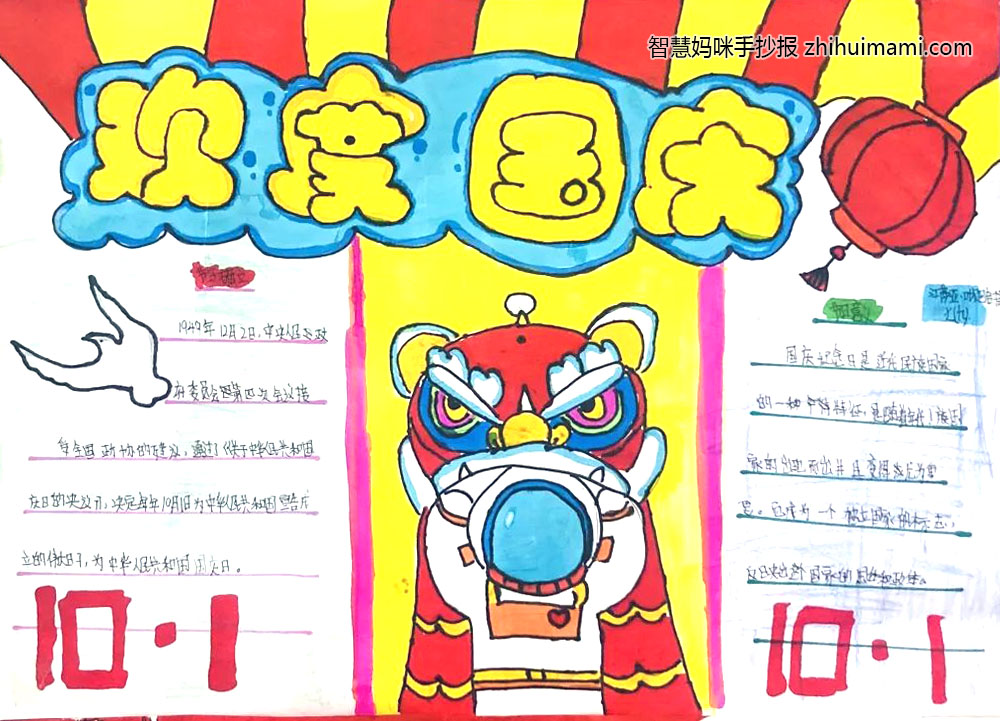 智慧妈咪手抄报 zhihuimami.com
欢度国庆
1949年12月2日,中央人民政
府委员会第四次会议接
全国政协的建议,通过了《关于中华人民共和国
在日的决议》,决定每年10月1日为中华人民共和国宣告
立的伟大日子,为中华人民共和国国庆日。
10·1
国庆纪念日是近代民族国家
的一种特征,是
家的出现而出并且变得尤为重
要。它成为一个独立国家的标志,
这个国家的国体和政体。
10·1